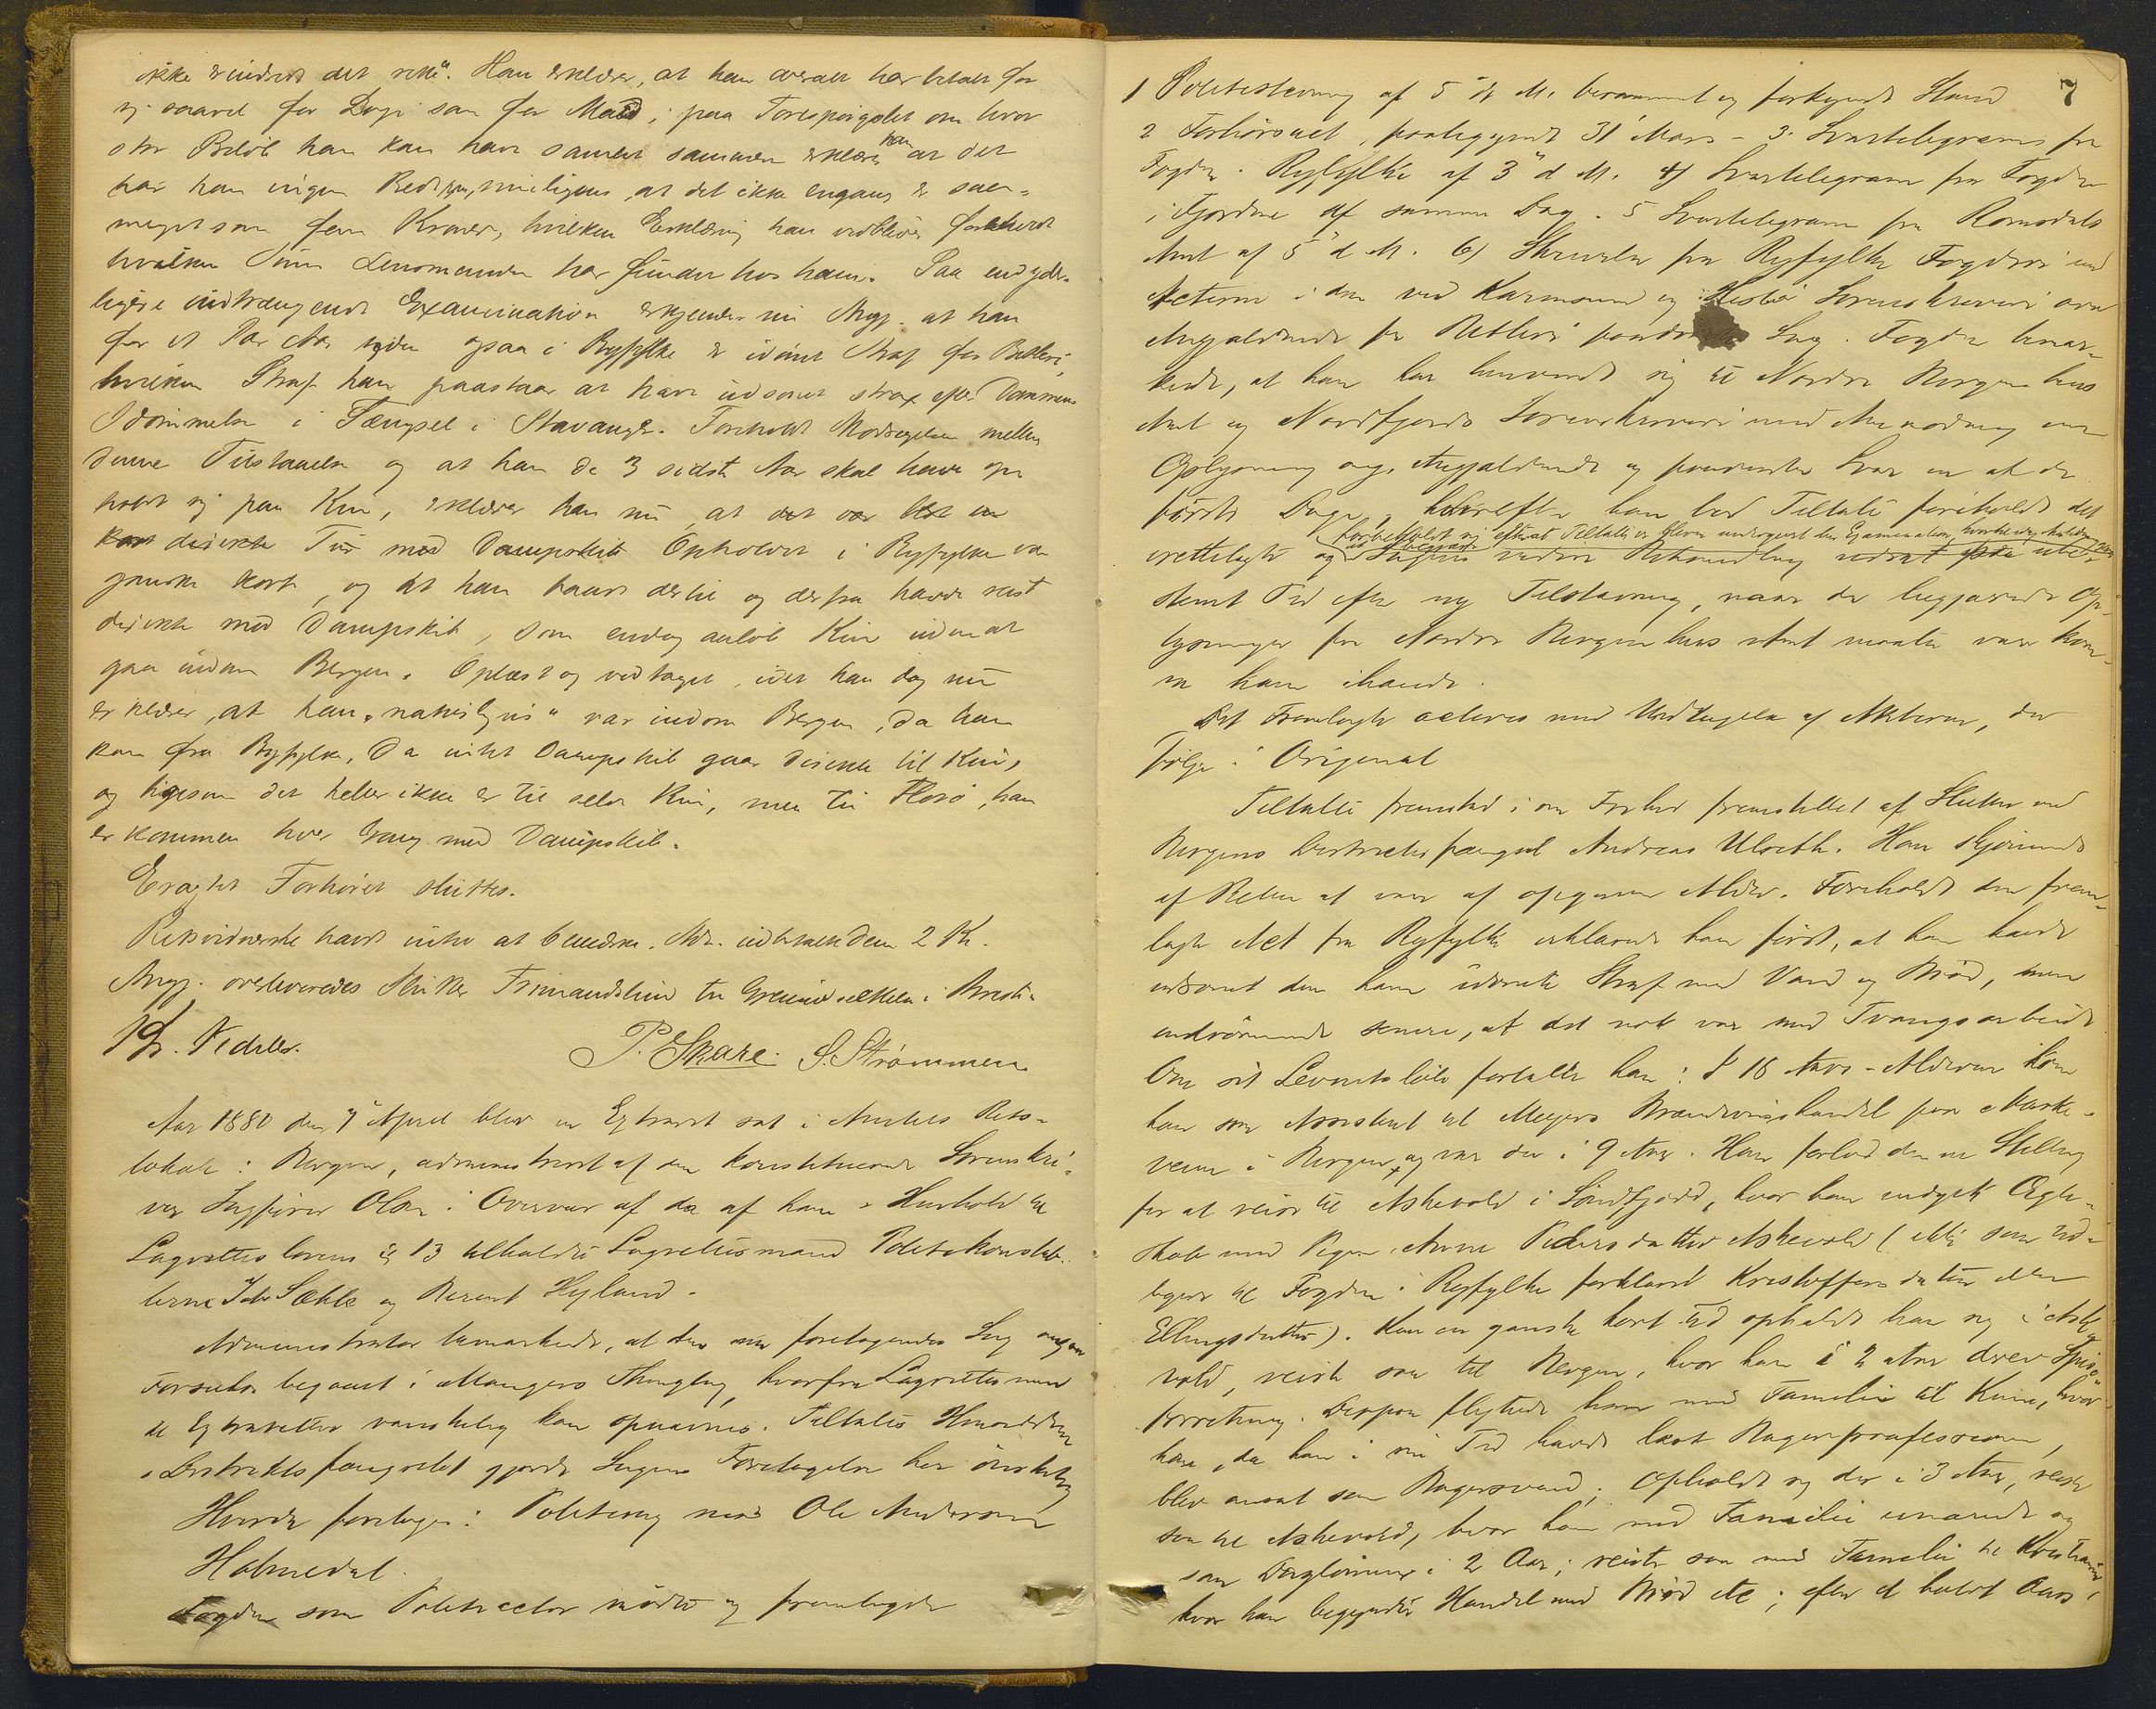 ikke erindret det rette". Han erklærer, at han overalt har betalt for
sig saavel for Logi som for Mad; paa Forespørgslet om hvor
stor Beløb han kan have samlet sammen erklærer han at det
har han ingen Rede paa, muligens, at det ikke engang er saa-
meget som fem Kroner, hvilken Erklæring han vedbliver foreholdt
hvilken Sum Lensmanden har fundet hos ham. Paa end yder-
ligere indtrængende Examination erkjender nu Angj. at han
for et Par Aar siden ogsaa i Ryfylke er idømt Straf for Betleri,
hvilken Straf han paastaar at have udsonet strax efter Dommens
Idømmelse i Fængsel i Stavanger. Foreholdt Modsigelsen mellem
denne Tilstaaelse og at han de 3 sidste Aar skal have op
holdt sig paa Kin, erklærer han nu at det var blot en
kort directe Tur med Dampskib Opholdet i Ryfylke var
ganske kort, og at han baade dertil og derfra havde reist
directe med Dampskib, som endog anløb Kin uden at
gaa indom Bergen. Oplæst og vedtaget, idet han dog nu
erklærer, at han "naturligvis" var indom Bergen, da han
kom fra Ryfylke, da intet Dampskib gaar directe til Kin,
og ligesom det heller ikke er til selve Kin, men til Florø, han
er kommen hver Gang med Dampskib.
Eragtet Forhøret sluttes.
Retsvidnerne havde intet at bemærke. Adm. udbetalte dem 2 Kr.
Angj. overleveredes Slutter Frimandslund til Greiend i Arresten
P. Skare. S. Strømmen
Aar 1880 den 7 April blev en Extraret sat i Amtets Rets-
lokale i Bergen, administreret af den konstituerede Sorenskri-
ver Sagfører Olsen i Overvær af de af ham i Henhold til
Lagrettes lovens § 13 tilkaldte Lagrettesmænd Politikonstab-
lerne Sæhle og Berent Hyland.
Administrator bemærkede, at den nu foretagendes Sag angaar
Forseelse begaaet i Mangers Thinglag, hvorfra Lagrettesmænd
til Extraretten vanskelig kan opnævnes. Tiltaltes Hensidden
i Distriktsfængslet gjorde Sagens Foretagelse her ønskelig
Hvorda foretages: Politisag mod Ole Andersen
Holmedal.
Fogden som Politiactor mødte og fremlagde
7
1 Politistevning af 5 d. M. berammet og forkyndt Stævn
2 Forhørsact, paabegyndt 31 Mars - 3. Svartelegram fra
Fogden i Ryfylke af 3 d M. 4) Svartelegram fra Fogden
i Fjordene af samme Dag. 5 Svartelegram fra Romsdals
Amt af 5 d M. 6) Skrivelse fra Ryfylke Fogderi med
Acterne i den ved Karmsund og Hesbø Sorenskriveri om
Angjældende for Betleri Sag. Fogden bemær-
kede, at han har henvendt sig til Nordre Bergenhus
Amt og Nordfjords Sorenskriveri med Anmodning om
Oplysning ang. Angjældende og paaventer Svar en af de
første Dage, hvorefter han lod Tiltalte foreholdt det
forbeholdt sig efterat Tiltalte er bleven undergivet den Examination,
irettelagte og begjærede Sagens videre Behandling udsat paa ube-
stemt Tid efter ny Tilstævning, naar de begjærede Op-
lysninger fra Nordre Bergenhus Amt maatte være kom-
ne ham ihænde.
Det Fremlagte acteres med Undtagelse af Akterne, der
følge i Original
Tiltalte fremstod i om Forhør fremstillet af Slutter ved
Bergens Distriktsfængsel Andreas Ulseth. Han skjønnedes
af Retten at være af opgiven Alder. Foreholdt den frem-
lagte Act fra Ryfylke erklærede han først, at han havde
udsonet den ham idømte Straf med Vand og Brød, men
indrømmede senere, at det nok var med Tvangsarbeide
Om sit Levnetsløb fortalte han: I 18 Aars-Alderen kom
han som Assistent til Meyers Brændevinshandel paa Marke-
veien i Bergen, og var der i 9 Aar. Han forlod denne Stilling
for at reise til Askevold i Søndfjord, hvor han indgik Ægte-
skab med Pigen Anne Pedersdatter Askevold (ikke som tid-
ligere til Fogden i Ryfylke forklaret Kristoffersdatter eller
Ellingsdatter). Kun en ganske kort Tid opholdt han sig i Aske-
vold, reiste saa til Bergen, hvor han i 2 Aar drev Spise-
forretning. Derpaa flyttede han med Familie til Kinn, hvor
han, da han i sin Tid havde lært Bagerprofessionen,
blev ansat som Bagersvend; opholdt sig der i 3 Aar, reiste
saa til Askevold, hvor han med Familie ernærede sig
som Dagløner i 2 Aar; reiste saa med Familie til Kristiania,
hvor han begyndte Handel med Brød etc; efter et halvt Aars